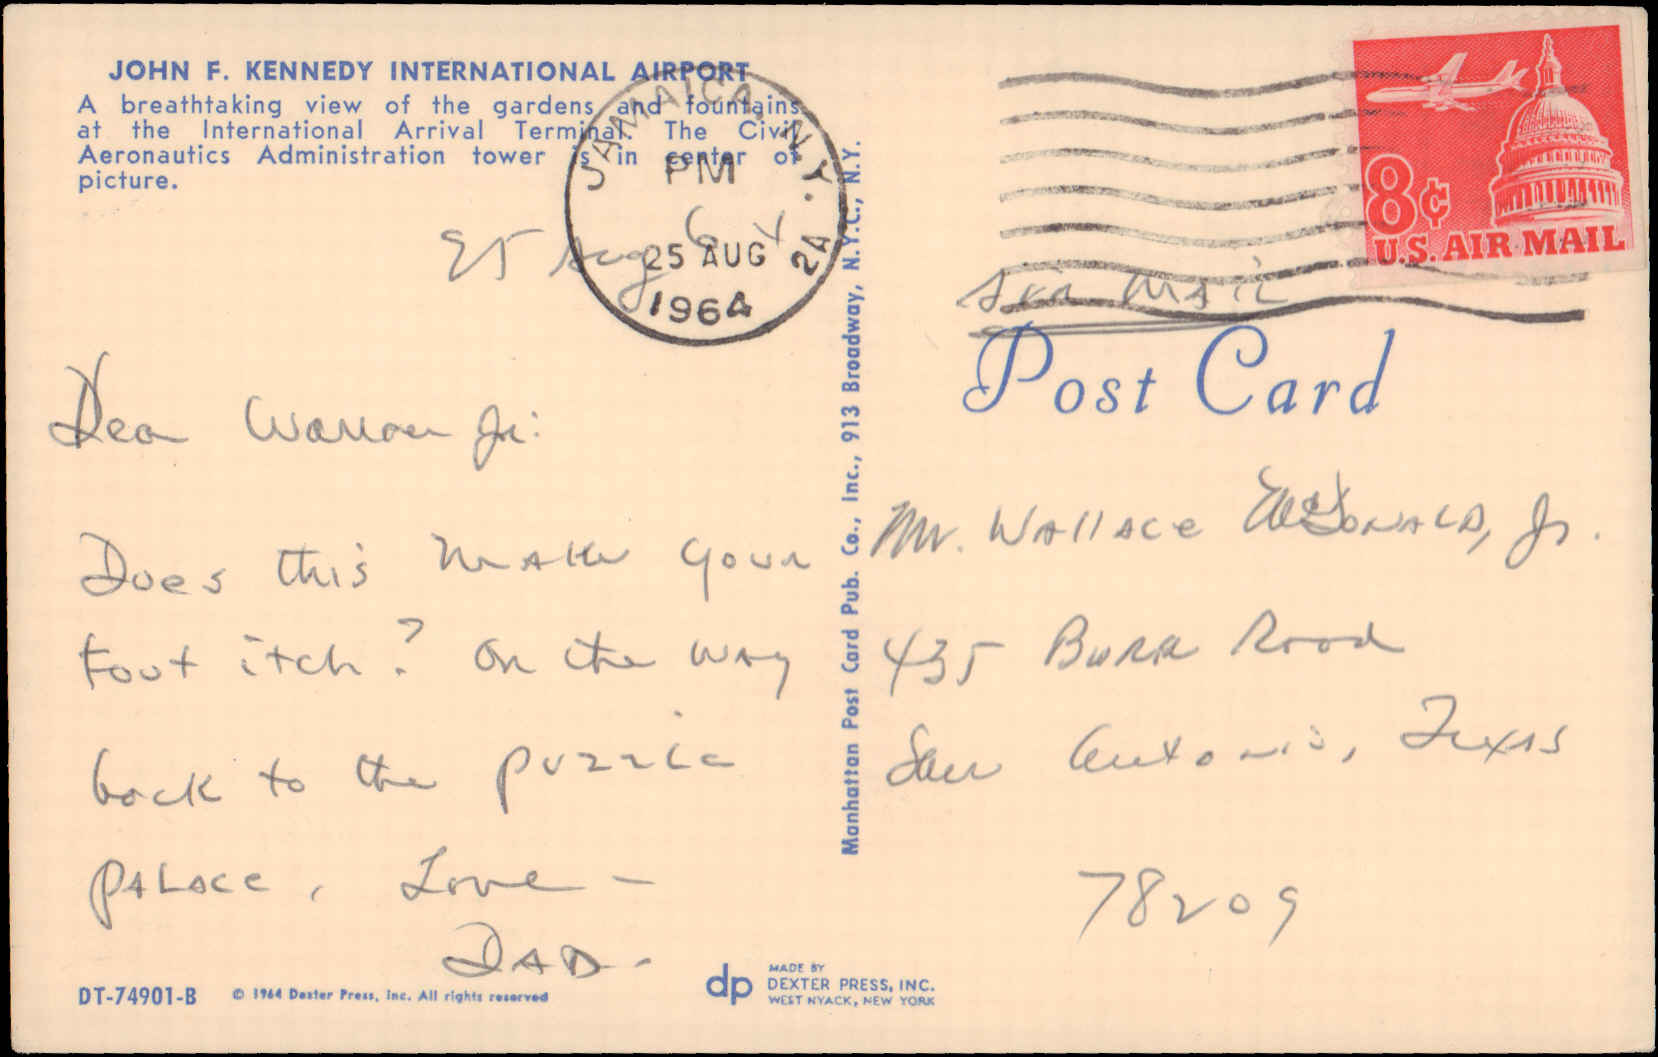 JOHN F. KENNEDY INTERNATIONAL AIRPORT
A breathtaking view of the gardens and fountains
at the International Arrival Terminal. The Civil
Aeronautics Administration tower is in center of
picture.
25 Aug 64
JAMAICA, N.Y. 2A
PM
25 AUG
1964
8¢
U.S. AIR MAIL
Air Mail
Post Card
Dear Jr:
Does this make your
foot itch? On the way
back to the puzzle
palace, Love -
DAD -
Manhattan Post Card Pub. Co., Inc., 913 Broadway, N.Y.C., N.Y.
Mr. Wallace McDonald, Jr.
435 Burr Road
San Antonio, Texas
78209
DT-74901-B
© 1964 Dexter Press, Inc. All rights reserved
dp
MADE BY
DEXTER PRESS, INC.
WEST NYACK, NEW YORK